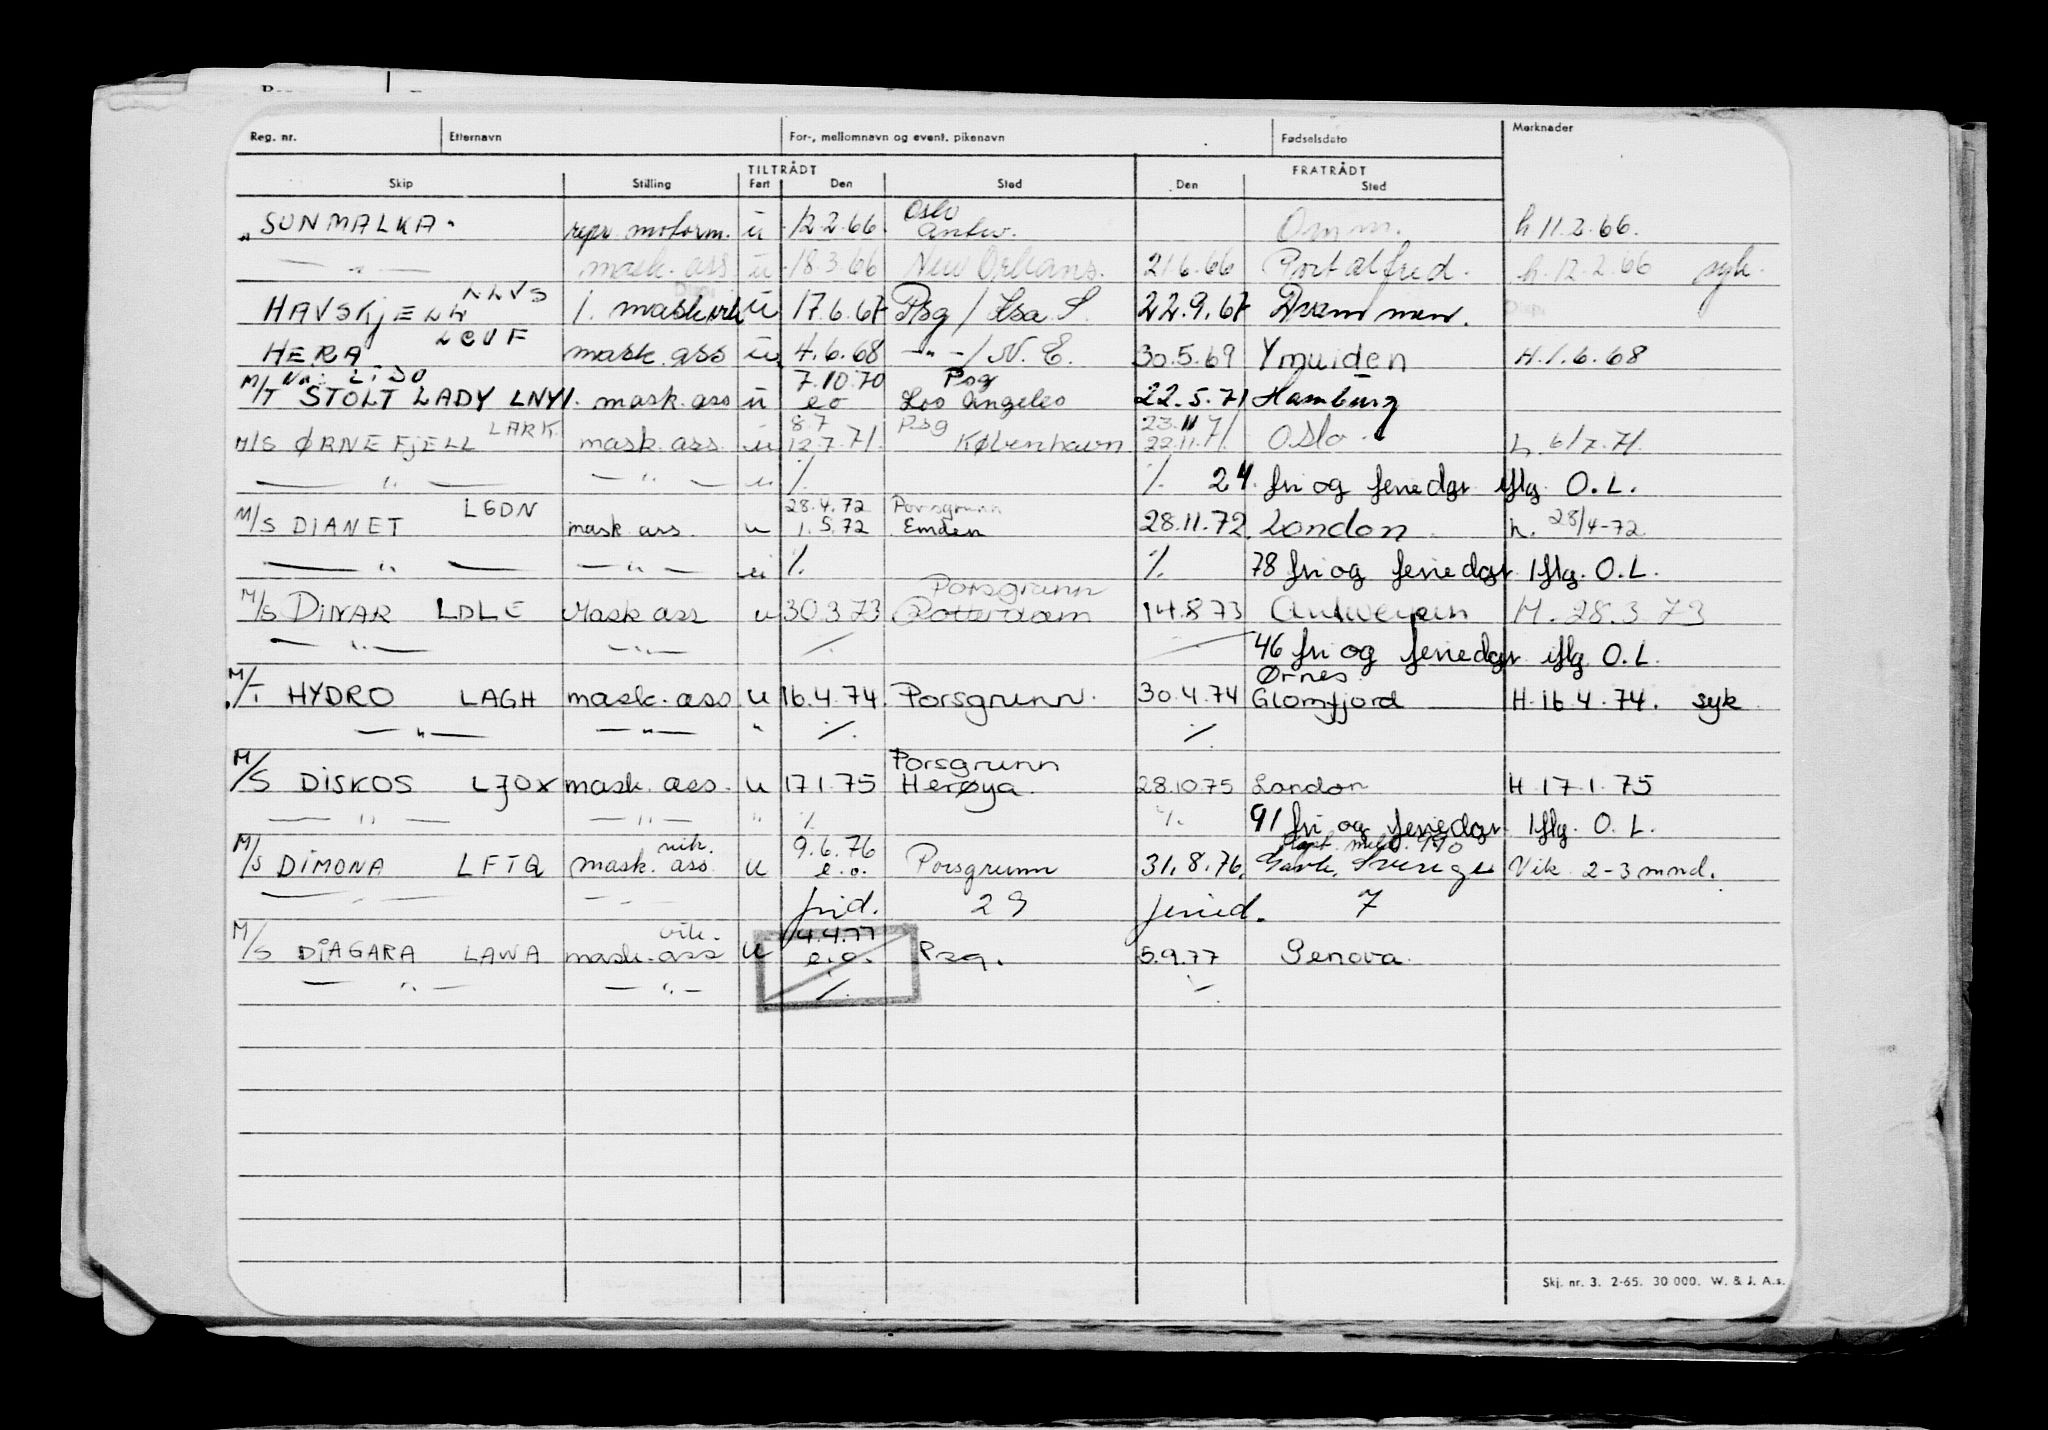 Reg. nr. Etternavn For-, mellomnavn og event. pikenavn Fødselsdato Merknader
TILTRÅDT FRATRÅDT
Skip Stilling Fart Den Sted Den Sted
Oslo
„ SUNMALKA " repr. motorm. u 12.2.66 Antw. Omm. h 11.2.66.
— " — mask. ass u 18.3.66 New Orleans. 21.6.66 Port Alfred. h. 12.2.66 syk.
LLVS
HAVSKJELL 1. mask u 17.6.67 Psg / Isa S. 22.9.67 Drammen.
LCUF
HERA mask. ass u 4.6.68 — " — / N. E. 30.5.69 Ymuiden H. 1.6.68
LIDO 7.10.70 Psg
M/T STOLT LADY LNYI. mask. ass u e o Los Angeles 22.5.71 Hamburg
LARK 8.7 Psg 23.11
M/S ØRNEFJELL mask. ass. u 12.7.71. København 22.11.71. Oslo. h. 6/7.71.
— " — — " — u ·/. ·/. 24. fri og feriedgr iflg. O. L.
LGDN 28.4.72 Porsgrunn
M/S DIANET mask ass. u 1.5.72 Emden 28.11.72. London. h. 28/4-72
— " — — " — u ·/. ·/. 78 fri og feriedgr. Iflg. O. L.
Porsgrunn
M/S DINAR LDLE Mask ass u 30.3.73 Rotterdam 14.8.73 Antwerpen M. 28.3.73
— " — — " — ·/. ·/. 46 fri og feriedgr. iflg. O. L.
Ørnes.
M/T HYDRO LAGH mask. ass. u 16.4.74. Porsgrunn. 30.4.74 Glomfjord H. 16.4.74. syk.
— " — — " — " ·/. ·/.
Porsgrunn
M/S DISKOS LJOX mask. ass. u 17.1.75 Herøya. 28.10.75 London H. 17.1.75
— " — — " — " ·/. ·/. 91 fri og feriedgr. Iflg. O. L.
vik. 9.6.76
M/S DIMONA LFTQ mask. ass. u e.o. Porsgrunn 31.8.76. Gävle, Sverige Vik 2-3 mnd.
— " — — " — frid. 29 feried. 7
vik. 4.4.77
M/S DIAGARA LAWA mask. ass u e.o. Psg. 5.9.77 Genova.
— " — — " — ·/. ·/.
Skj. nr. 3. 2-65. 30 000. W. & J. A.s.